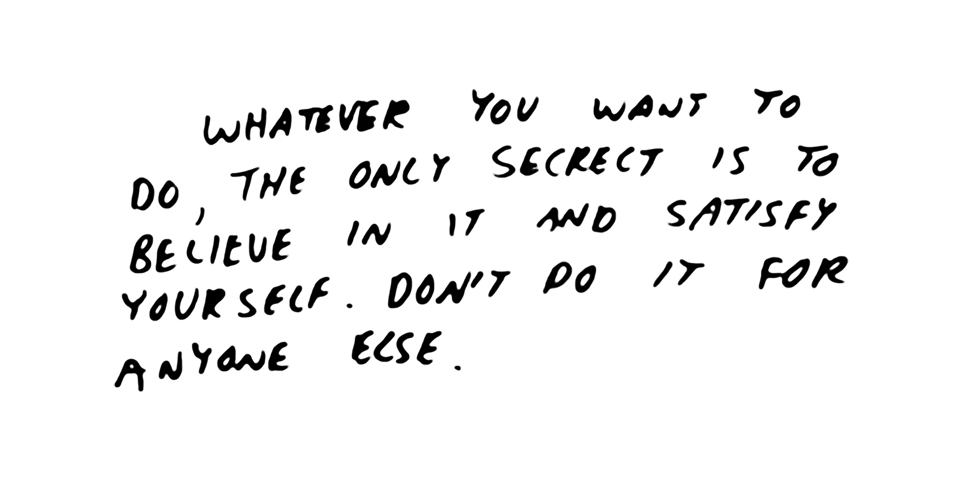 WHATEVER YOU WANT TO
DO, THE ONLY SECRECT IS TO
BELIEVE IN IT AND SATISFY
YOURSELF. DON'T DO IT FOR
ANYONE ELSE.